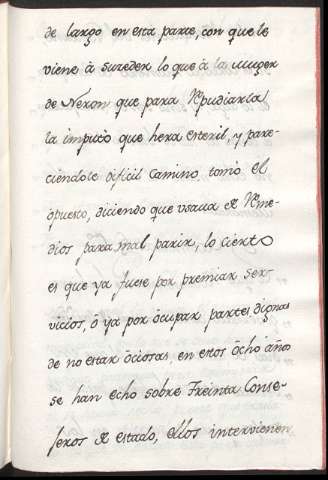 de largo en esta parte, con que le
viene à suceder lo que à la muger
de Neron que para Repudiarla
la imputò que hera esteril, y pare-
ciéndole dificil camino tomò el
opuesto, diciendo que usaua de Reme-
dios para mal parir, lo cierto
es que ya fuese por premiar ser-
vicios, ò ya por òcupar partes dignas
de no estar òciosas en estos òcho años
se han echo sobre Treinta Conse-
jeros de estado, ellos intervienen